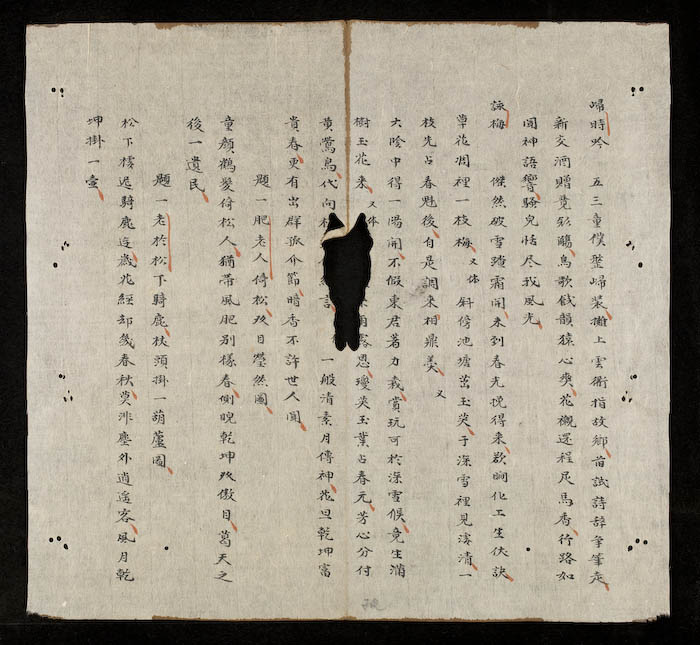 歸時吟 五三童僕整歸裝擁上雲衢指故鄉首試詩辭爭筆走
新交酒贈竟飛觴鳥歌餞韻猿心爽花襯還程尺馬香行路如
聞神語響騷兒恬尽我風光
詠梅 傑然破雪踏霜開來到春光悅得來欲闘化工生伎訣
草花凋裡一枝梅 又体 斜傍池塘茁玉英于深雪裡見凄清一
枝先占春魁後自是調來相鼎羙 又
大陰中得一陽開不假東君着力栽賞玩可於深雪候竟生消
樹玉花来 又体 露恩瓊英玉葉占春元芳心分付
黄鶯鳥代向 言 一般清素月傳神花旦乾坤富
貴春更有出群孤介節暗香不許世人聞
題一肥老人倚松攷目瑩然圖
童顏鶴髮倚松人猶帶風肥別樣春側睨乾坤攷傲目葛天之
後一遺民
題一老於松下騎鹿杖頭掛一葫蘆圖
松下樓遲騎鹿遊歲花經却幾春秋莫渉塵外逍遥客風月乾
坤掛一壺